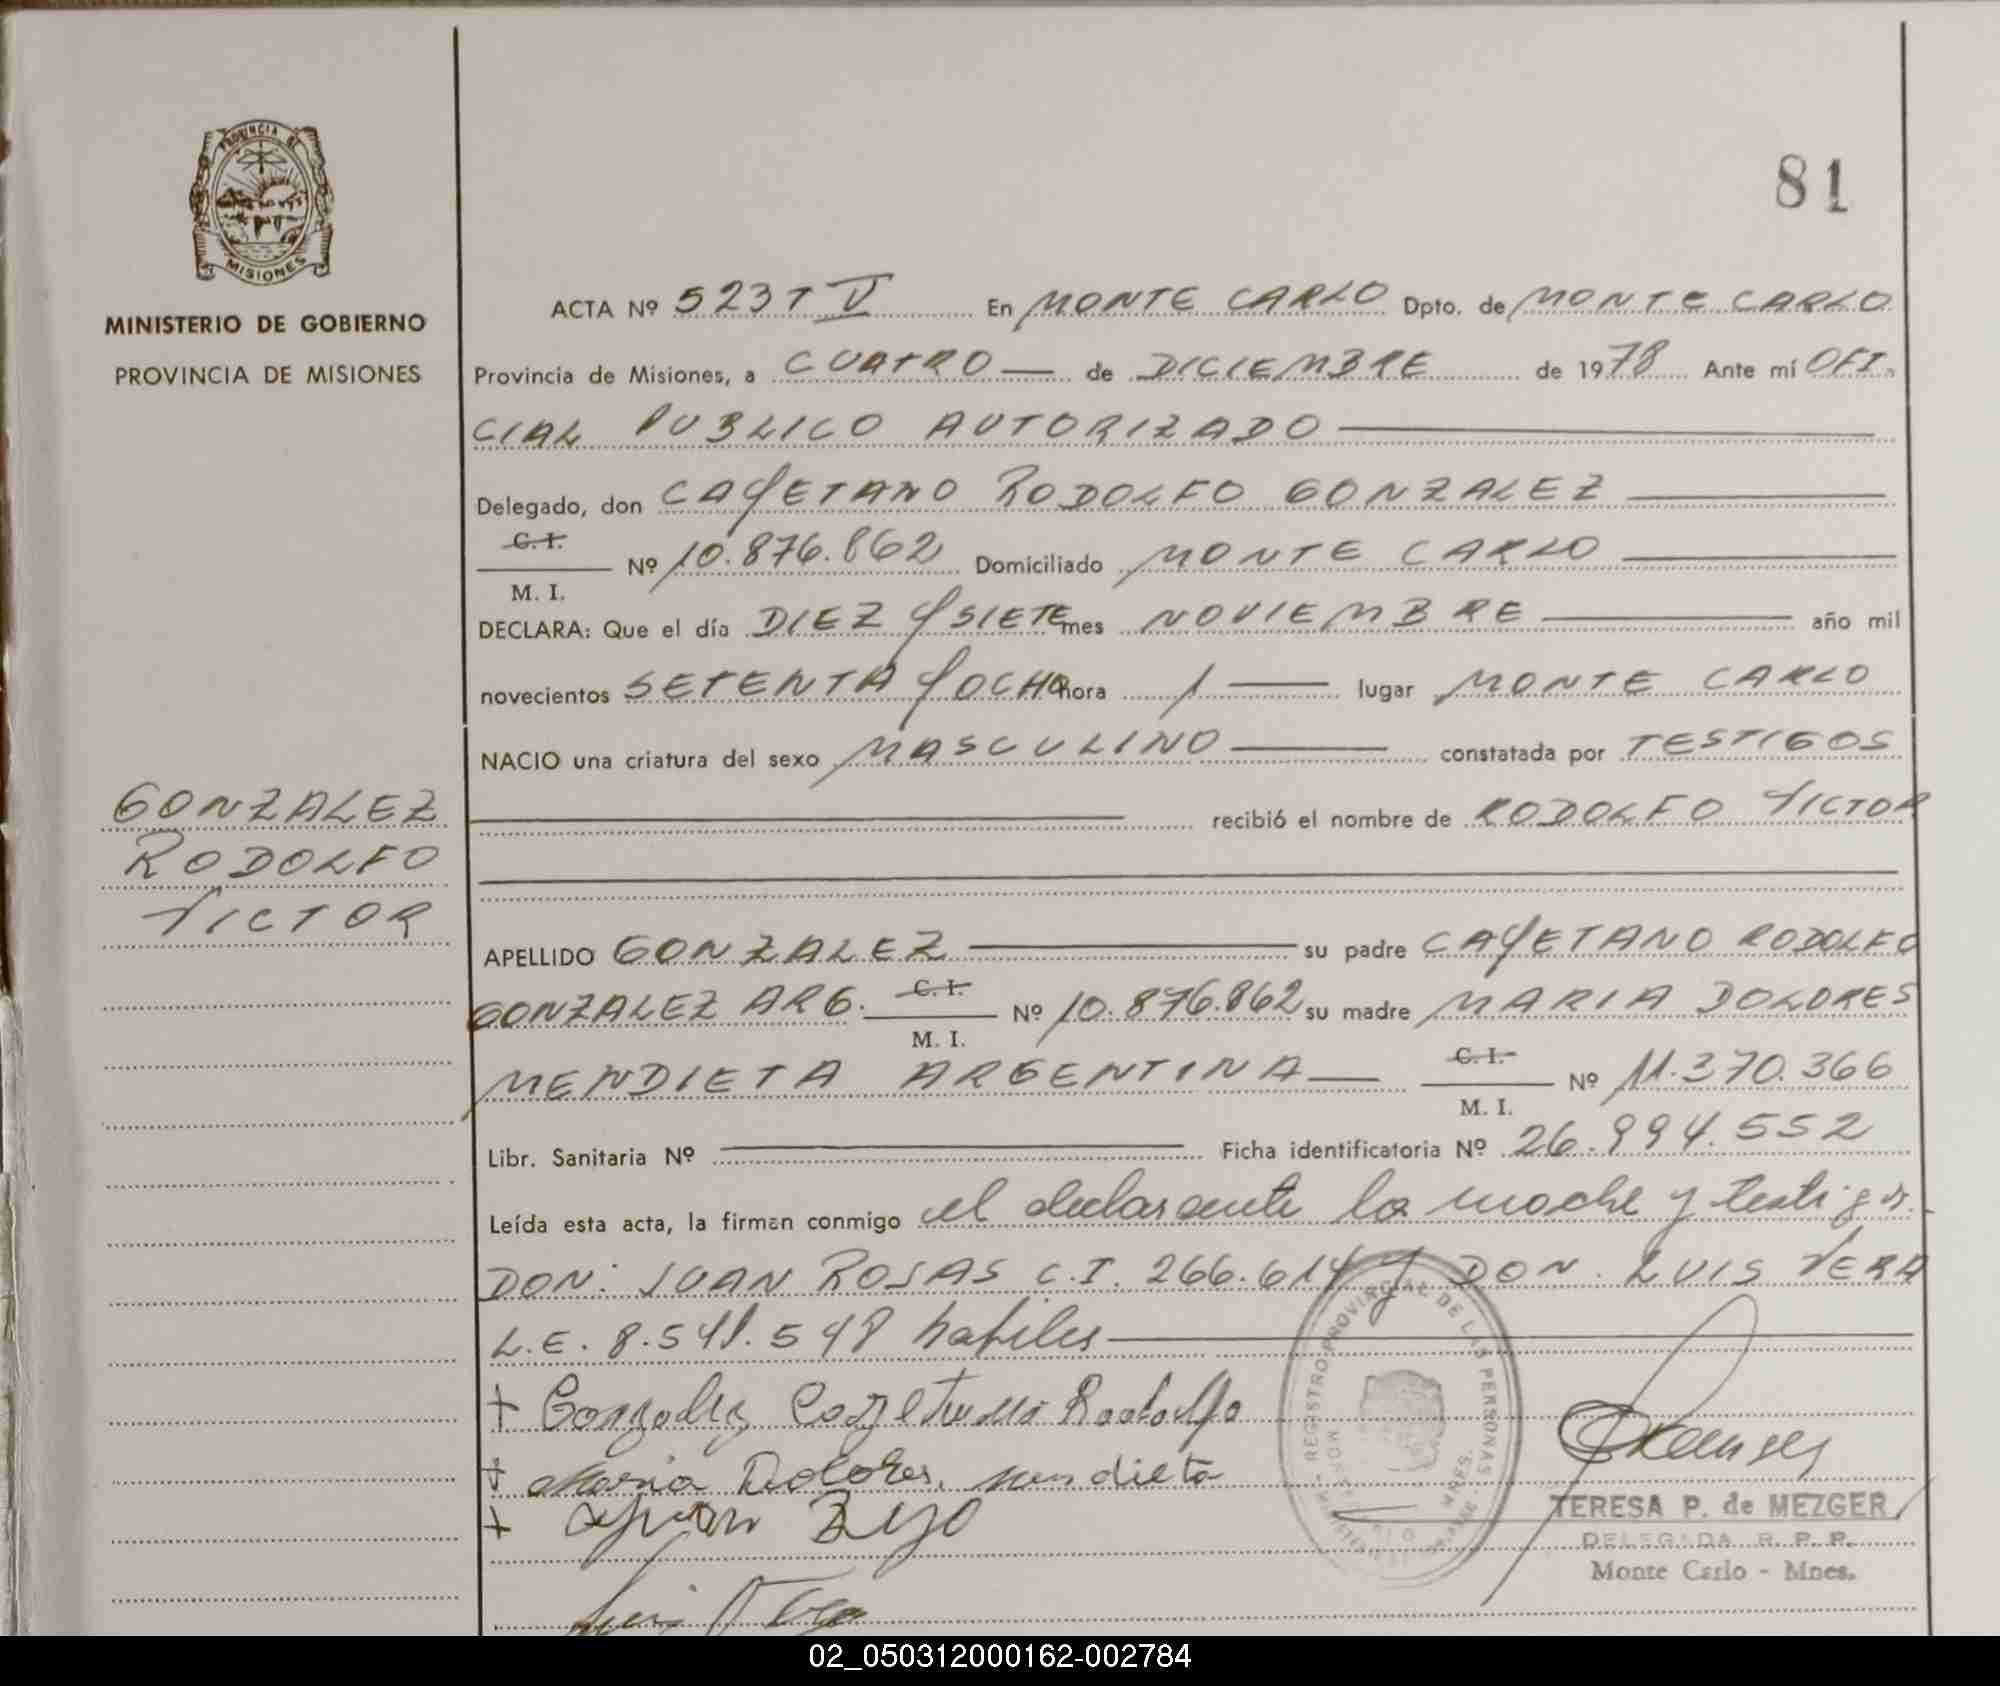 PROVINCIA DE
MISIONES
MINISTERIO DE GOBIERNO
PROVINCIA DE MISIONES
81
ACTA Nº 523 T V En MONTE CARLO Dpto. de MONTE CARLO
Provincia de Misiones, a CUATRO de DICIEMBRE de 1978 Ante mí OFI-
CIAL PUBLICO AUTORIZADO
Delegado, don CAYETANO RODOLFO GONZALEZ
C. I.
M. I. Nº 10.876.862 Domiciliado MONTE CARLO
DECLARA: Que el día DIEZ Y SIETE mes NOVIEMBRE año mil
novecientos SETENTA Y OCHO hora 1 lugar MONTE CARLO
NACIO una criatura del sexo MASCULINO constatada por TESTIGOS
recibió el nombre de RODOLFO VICTOR
GONZALEZ
RODOLFO
VICTOR
APELLIDO GONZALEZ su padre CAYETANO RODOLFO
GONZALEZ ARG. C. I. M. I. Nº 10.876.862 su madre MARIA DOLORES
MENDIETA ARGENTINA C. I. M. I. Nº 11.370.366
Libr. Sanitaria Nº Ficha identificatoria Nº 26.994.552
Leída esta acta, la firman conmigo el declarante la madre y testigos.
DON: JUAN ROJAS C.I. 266.614 y DON. LUIS VERA
L.E. 8.541.548 habiles
+ Gonzalez Cayetano Rodolfo
+ Maria Dolores. mendieta
+ Juan
Luis
REGISTRO PROVINCIAL DE LAS PERSONAS
TERESA P. de MEZGER
DELEGADA R. P. P.
Monte Carlo - Mnes.
02_050312000162-002784